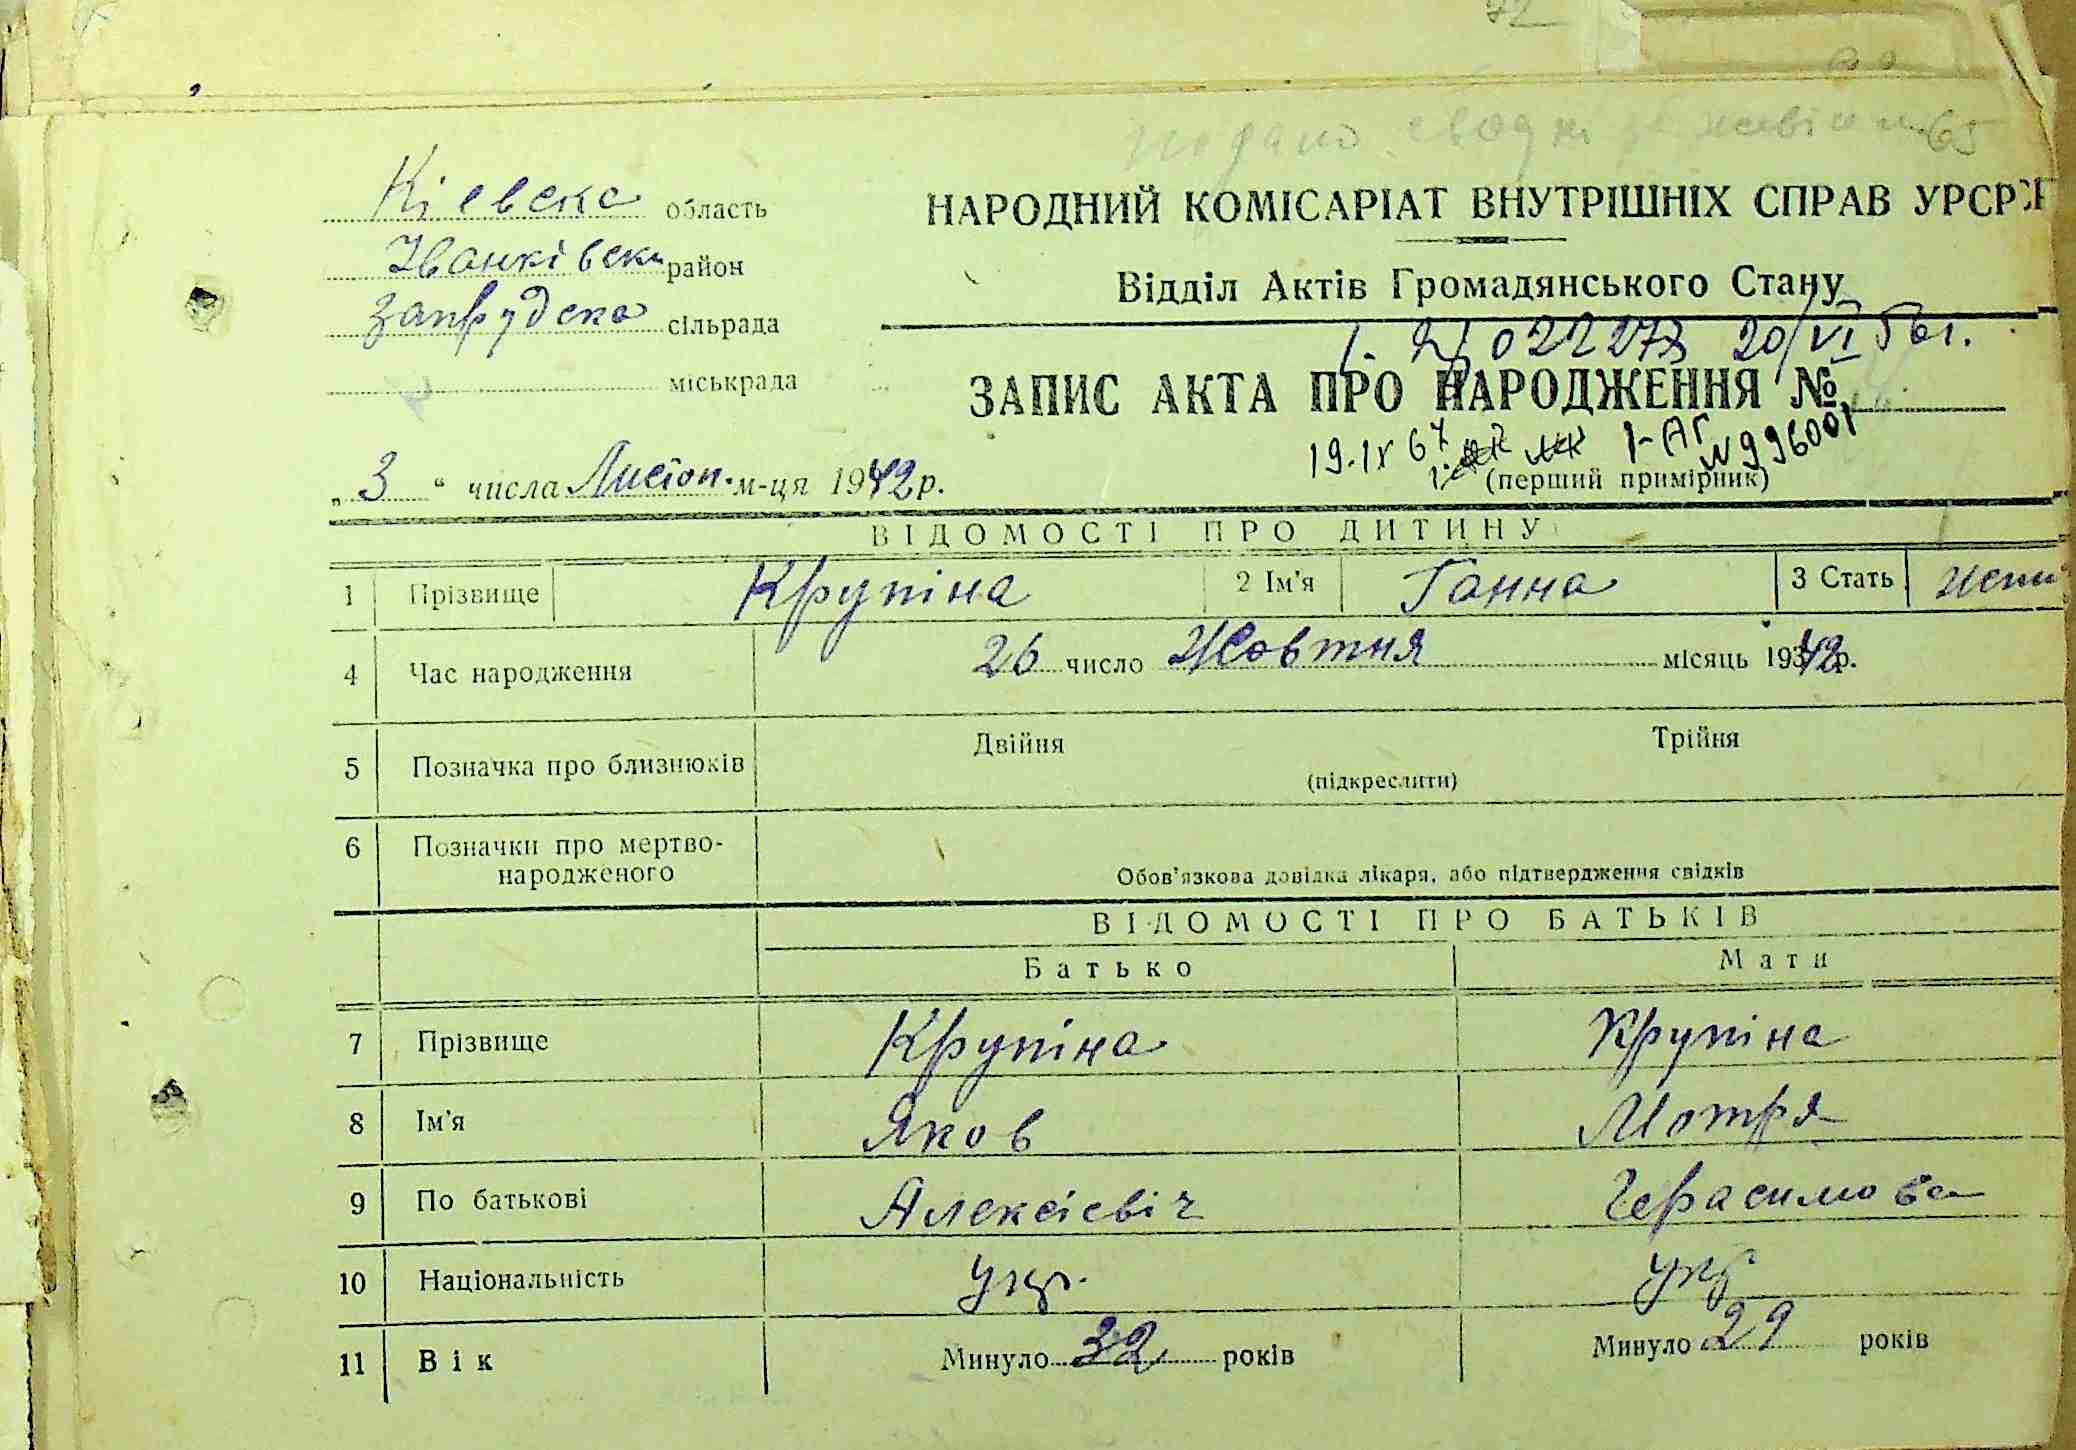 65
Кіевска область
НАРОДНИЙ КОМІСАРІАТ ВНУТРІШНІХ СПРАВ УРСР
Іванківськ район
Відділ Актів Громадянського Стану
Запрудска сільрада
022273 20/VI 56 г.
міськрада
ЗАПИС АКТА ПРО НАРОДЖЕННЯ №
19.IX 67 1-АГ N996001
„3“ числа Листоп. м-ця 1942 р.
(перший примірник)
ВІДОМОСТІ ПРО ДИТИНУ
1 Прізвище Крупіна 2 Ім'я Ганна 3 Стать жен
4 Час народження 26 число Жовтня місяць 1942 р.
5 Позначка про близнюків Двійня Трійня
(підкреслити)
6 Позначки про мертво-
народженого Обов'язкова довідка лікаря, або підтвердження свідків
ВІДОМОСТІ ПРО БАТЬКІВ
Батько Мати
7 Прізвище Крупіна Крупіна
8 Ім'я Яков Мотря
9 По батькові Алексієвіч Герасимова
10 Національність укр. укр
11 Вік Минуло 32 років Минуло 29 років